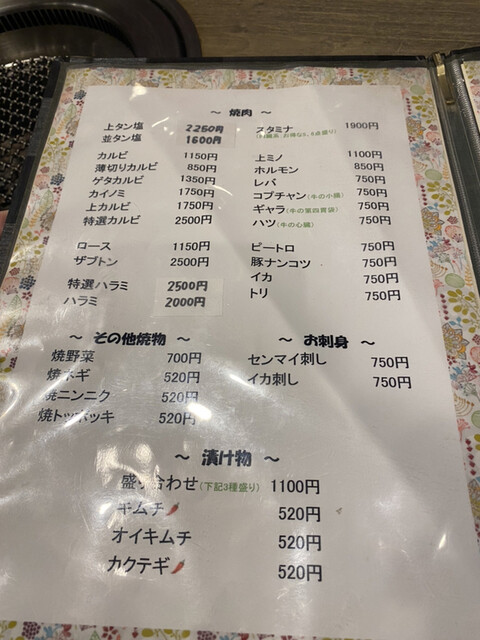 ～ 焼肉 ～
上タン塩 2250円
並タン塩 1600円
カルビ 1150円
薄切りカルビ 850円
ゲタカルビ 1350円
カイノミ 1750円
上カルビ 1750円
特選カルビ 2500円
ロース 1150円
ザブトン 2500円
特選ハラミ 2500円
ハラミ 2000円
スタミナ 1900円
お得な5,6点盛り)
上ミノ 1100円
ホルモン 850円
レバ 750円
コプチャン(牛の小腸) 750円
ギャラ(牛の第四胃袋) 750円
ハツ(牛の心臓) 750円
ピートロ 750円
豚ナンコツ 750円
イカ 750円
トリ 750円
～ その他焼物 ～
焼野菜 700円
焼ネギ 520円
焼ニンニク 520円
焼トッポッキ 520円
～ お刺身 ～
センマイ刺し 750円
イカ刺し 750円
～ 漬け物 ～
盛り合わせ(下記3種盛り) 1100円
キムチ 520円
オイキムチ 520円
カクテギ 520円